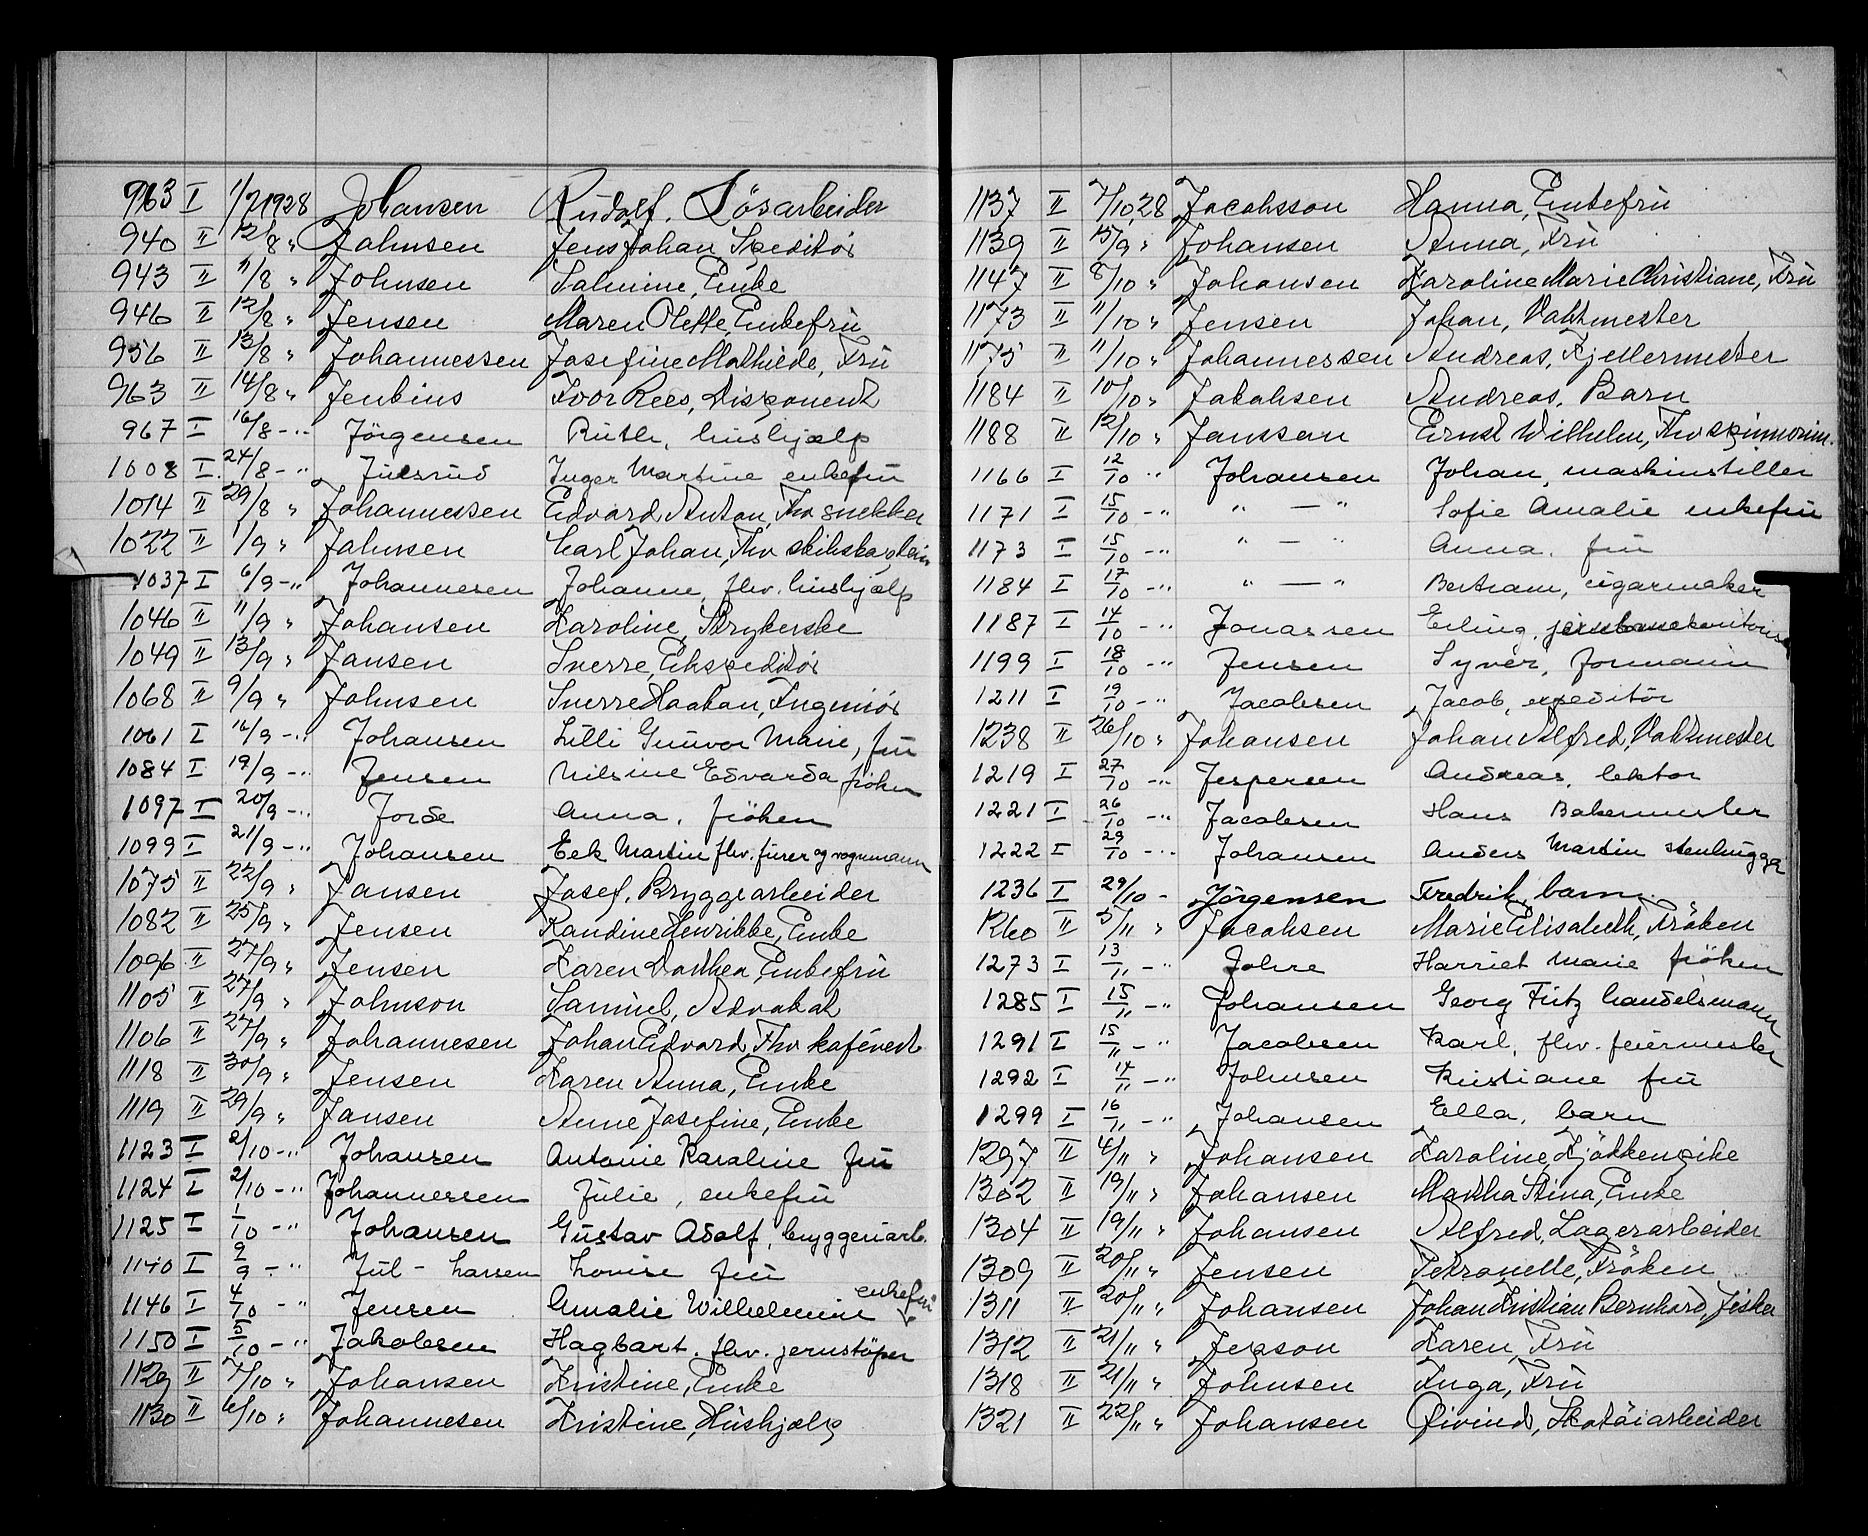 963 I 1/7 1928 Johansen Rudolf. Løsarbeider
940 II 12/8 " Johnsen Jens Johan, Speditør
943 II 11/8 " Johnsen Salmine, Enke
946 II 12/8 " Jensen Maren Olette, Enkefru
956 II 13/8 " Johannessen Josefine Mathilde, Fru
963 II 14/8 " Jenkins Ivor Rees, Disponent
967 I 16/8 -" Jörgensen Ruth, hushjælp
1008 I 24/8 -" Julsrud Inger Martine enkefru
1014 II 29/8 " Johannessen Edvard Anton, Fhv snekker
1022 II 1/9 " Johnsen Carl Johan, Fhv skibskaptein
1037 I 6/9 -" Johannesen Johanne, fhv. hushjælp
1046 II 11/9 " Johansen Karoline, Strykerske
1049 II 13/9 " Jansen Sverre, Ekspeditør
1068 II 9/9 " Johnsen Sverre Haakon, Ingeniør
1061 I 16/9 -" Johansen Lilli Gunvor Marie, fru
1084 I 19/9 -" Jensen Nilsine Edvarda frøken
1097 I 20/9 -" Jorde Anna, frøken
1099 I 21/9 -" Johansen Eek Martin fhv. furer og vognmann
1075 II 22/9 " Jansen Josef, Bryggearbeider
1082 II 25/9 " Jensen Randine Henrikke, Enke
1096 II 27/9 " Jensen Karen Dorthea, Enkefru
1105 II 27/9 " Johnson Samuel, Advokat
1106 II 27/9 " Johannesen Johan Edvard Fhv kafévert
1118 II 30/9 " Jensen Karen Anna, Enke
1119 II 29/9 " Jansen Anne Josefine, Enke
1123 I 2/10 -" Johansen Antonie Karoline fru
1124 I 2/10 -" Johannessen Julie, enkefru
1125 I 1/10 -" Johansen Gustav Adolf, bryggeriarb.
1140 I 9/9 -" Jul-Larsen Louise fru
1146 I 4/10 -" Jensen Amalie Wilhelmine enkefru
1150 I 5/10 -" Jakobsen Hagbart. fhv. jernstöper
1129 II 7/10 " Johansen Kristine, Enke
1130 II 6/10 " Johannesen Kristine, Hushjælp
1137 II 7/10 28 Jacobsson Hanna, Enkefru
1139 II 15/9 " Johansen Anna, Fru
1147 II 8/10 " Johansen Karoline Marie Christiane, Fru
1173 II 11/10 " Jensen Johan, Vaktmester
1175 II 11/10 " Johannessen Andreas, Kjellermester
1184 II 10/10 " Jakobsen Andreas. Barn
1188 II 12/10 " Jansson Ernst Wilhelm, Fhv spinnerim.
1166 I 12/10 -" Johansen Johan, maskinstiller
1171 I 15/10 -" " — " Sofie Amalie enkefru
1173 I 15/10 -" " — " Anna, fru
1184 I 17/10 -" " — " Bertram, cigarmaker
1187 I 14/10 -" Jonassen Erling, jernbanekontorist
1199 I 18/10 -" Jensen Syver, formann
1211 I 19/10 -" Jacobsen Jacob, expeditör
1238 II 26/10 " Johansen Johan Alfred, Vaktmester
1219 I 27/10 -" Jespersen Andreas, lektor
1221 I 26/10 -" Jacobsen Hans Bakermester
1222 I 29/10 -" Johansen Anders Martin stenhugger
1236 I 29/10 - Jörgensen Fredrik, barn
1260 II 5/11 " Jacobsen Marie Elisabeth, Frøken
1273 I 13/11 -" Johre Harriet Marie fröken
1285 I 15/11 -" Johansen Georg Fritz handelsmann
1291 I 15/11 -" Jacobsen Karl, fhv. feiermester
1292 I 14/11 -" Johnsen Kristiane fru
1299 I 16/11 -" Johansen Ella, barn
1297 II 4/11 " Johansen Karoline, Kjøkkenpike
1302 II 19/11 " Johansen Martha Stina, Enke
1304 II 19/11 " Johansen Alfred, Lagerarbeider
1309 II 20/11 " Jensen Petronelle, Frøken
1311 II 20/11 " Johansen Johan Kristian Bernhard, Fisker
1312 II 21/11 " Jepson Karen, Fru
1318 II 21/11 " Johnsen Inga, Fru
1321 II 22/11 " Johansen Øivind, Skotøiarbeider